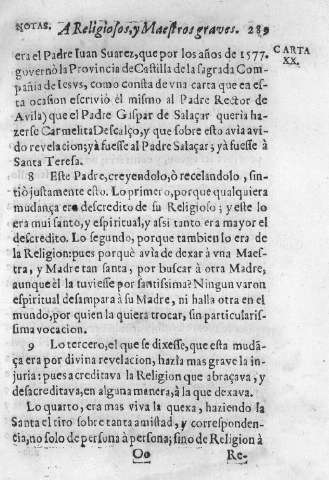 NOTAS. A Religiosos, y Maestros graves. 289
era el Padre Iuan Suarez, que por los años de 1577.
CARTA
XX.
governò la Provincia de Castilla de la sagrada Com-
pañia de Iesvs, como consta de vna carta que en es-
ta ocasion escriviò el mismo al Padre Rector de
Avila) que el Padre Gaspar de Salaçar queria ha-
zerse Carmelita Descalço, y que sobre esto avia avi-
do revelacion; yà fuesse al Padre Salaçar; yà fuesse à
Santa Teresa.
8 Este Padre, creyendolo, ò recelandolo, sin-
tiò justamente esto. Lo primero, porque qualquiera
mudança era descredito de su Religioso; y este lo
era mui santo, y espiritual, y assi tanto era mayor el
descredito. Lo segundo, porque tambien lo era de
la Religion: pues porquè avia de dexar à vna Maes-
tra, y Madre tan santa, por buscar à otra Madre,
aunque èl la tuviesse por santissima? Ningun varon
espiritual desampara à su Madre, ni halla otra en el
mundo, por quien la quiera trocar, sin particularis-
sima vocacion.
9 Lo tercero, el que se dixesse, que esta mudã-
ça era por divina revelacion, hazla mas grave la in-
juria: pues acreditava la Religion que abraçava, y
desacreditava, en alguna manera, à la que dexava.
Lo quarto, era mas viva la quexa, haziendo la
Santa el tiro sobre tanta amistad, y corresponden-
cia, no solo de persona à persona; sino de Religion à
Oo Re-